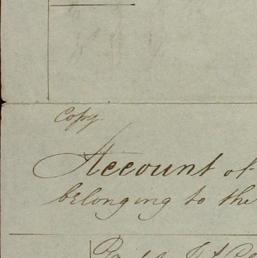 Copy
Account of
belonging to the